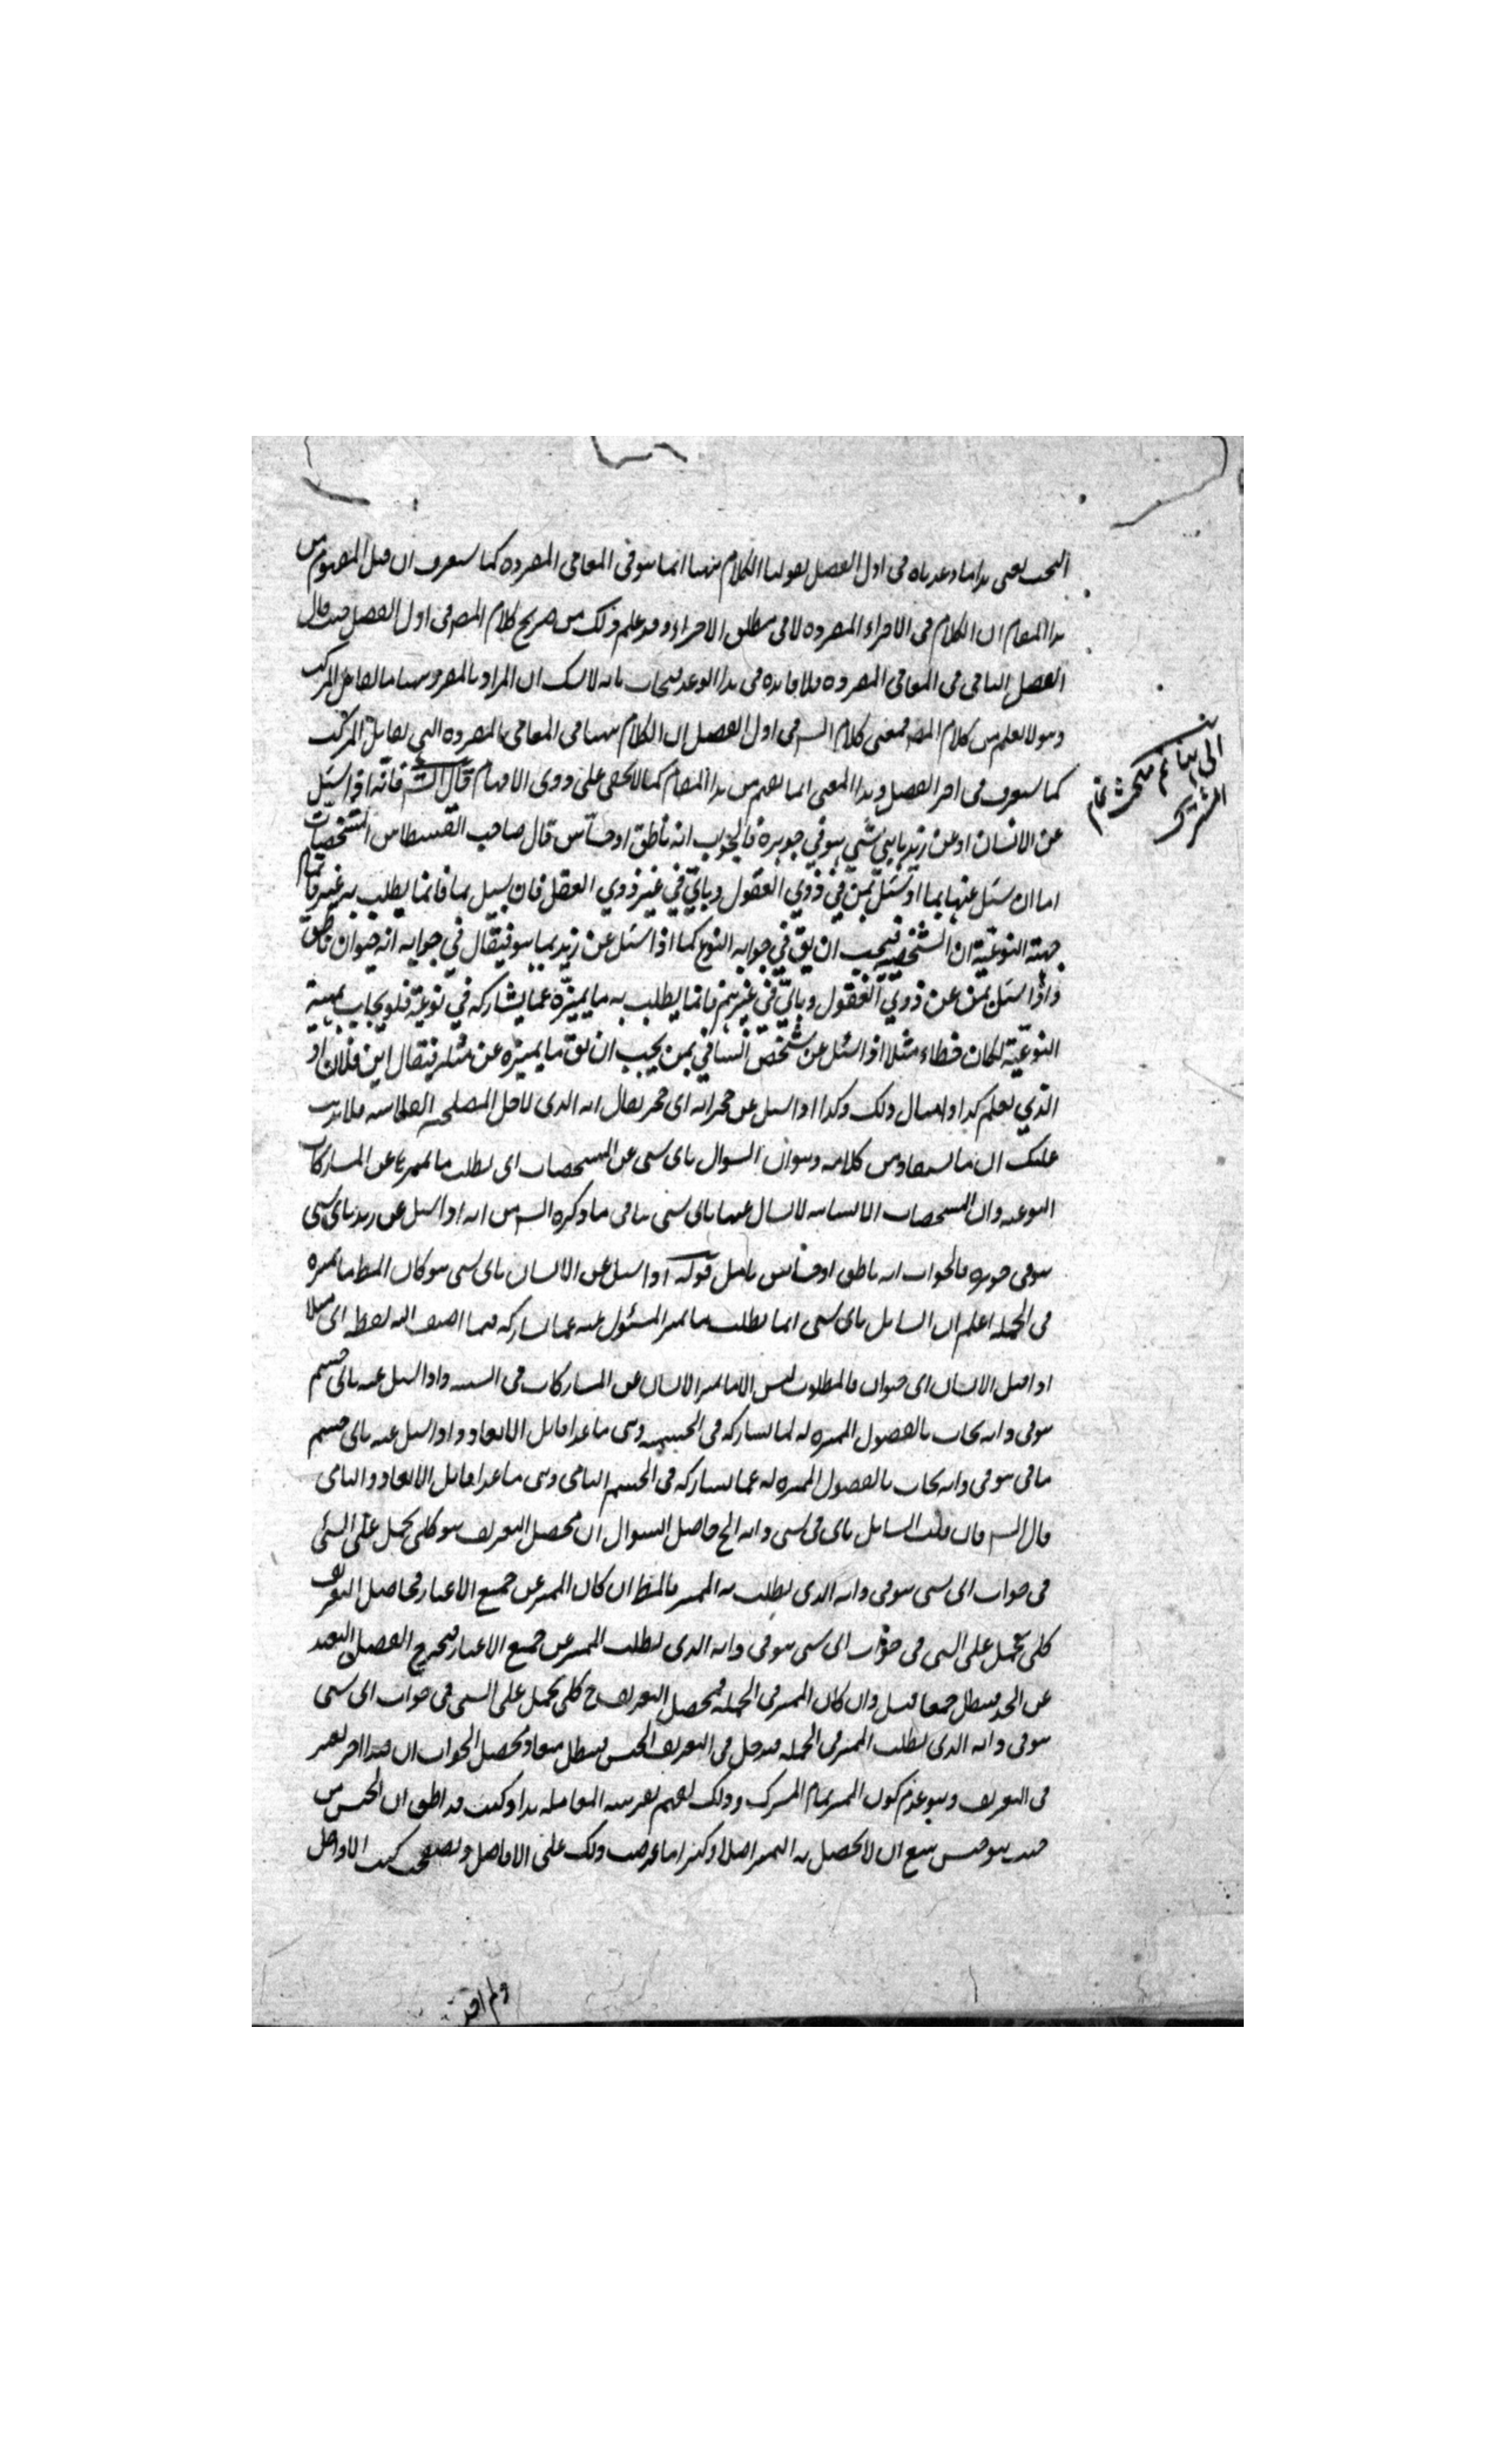 البحث يعنى هذا ما وعدناه فى اول الفصل بقولنا الكلام ههنا انما هو فى المعانى المفردة كما ستعرف ان قيل المفهوم من
هذا المقام ان الكلام فى الاجزاء المفردة لا فى مطلق الاجزاء وقد علم ذلك من صريح كلام المص فى اول الفصل حيث قال
الفصل الثانى فى المعانى المفردة فلا فائدة فى هذا الوعد فيجاب بانه لا شك ان المراد بالمفرد ههنا ما يقابل المركب
وهو لا يعلم من كلام المص فمعنى كلام الش فى اول الفصل ان الكلام ههنا فى المعانى المفردة التى تقابل المركب
كما ستعرف فى اخر الفصل وهذا المعنى انما يفهم من هذا المقام كما لا يخفى على ذوى الافهام قال الش فانه اذا سئل
عن الانسان او عن زيد باى شىء هو في جوهره فالجواب انه ناطق او حساس قال صاحب القسطاس المشخصات
اما ان سئل عنها بما او سئل بمن في ذوي العقول وباي في غير ذوي العقل فان سئل بما فانما يطلب به غير تمام
جهته النوعية ان الشخصية فيجب ان يق في جوابه النوع كما اذا سئل عن زيد بما هو فيقال في جوابه انه حيوان ناطق
واذا سئل بمن عن ذوي العقول وباي في غيرهم فانما يطلب به ما يميزه عما يشاركه في نوعه فلو يجاب بمهية
النوعية لكان خطاء مثلا اذا سئل عن شخص انساني بمن يجب ان يق ما يميزه عن مثله فيقال ابن فلان او
الذي يعلم كذا وامثال ذلك وكذا اذا سئل عن حجر انه اى حجر يقال انه الذى لاجل المصلحة الفلانية فلا يذهب
عليك ان ما استفاد من كلامه وهو ان السؤال باى شى عن المشخصات اى يطلب ما يميزها عن المشاركات
النوعية وان المشخصات الانسانية لا يسال عنها باى شى ينافى ما ذكره الش من انه اذا سئل عن زيد باى شى
هو فى جوهره فالجواب انه ناطق او حساس تامل قوله اذا سئل عن الانسان باى شى هو كان المط ما يميزه
فى الجملة اعلم ان السائل باى شى انما يطلب ما يميز المسئول عنه عما يشاركه فيما اضيف اليه لفظ اى مثلا
اذا قيل الانسان اى حيوان فالمطلوب ليس الا ما يميز الانسان عن المشاركات فى السنه واذا سئل عنه باى جسم
هو فى ذاته يجاب بالفصول المميزة له لما يشاركه فى الجسمية وهى ما عدا قابل الابعاد واذا سئل عنه باى جسم
نامى هو فى ذاته يجاب بالفصول المميزة له عما يشاركه فى الجسم النامى وهى ما عدا قابل الابعاد والنامى
قال الش فان قلت السائل باى شى فى ذاته الخ حاصل السوال ان محصل التعريف هو كلى يحمل على الشئ
فى جواب اى شى هو فى ذاته الذى يطلب به المميز فالمط ان كان المميز عن جميع الاغيار فحاصل التعريف
كلى يحمل على الشى فى جواب اى شى هو فى ذاته الذى يطلب المميز عن جميع الاغيار فيخرج الفصل البعيد
عن الحد فبطل جمعا قيل وان كان المميز فى الجملة فمحصل التعريف ح كلى يحمل على الشى فى جواب اى شى
هو فى ذاته الذى يطلب المميز فى الجملة فيدخل فى التعريف الجنس فبطل منعا ومحصل الجواب ان قيدا اخر يعتبر
فى التعريف وهو عدم كون المميز تمام المشترك وذلك يفهم بقرينة المقابلة هذا وكنت قد اظن ان الجنس من
حيث هو جنس يمنع ان لا يحصل به التميز اصلا وكثيرا ما عرضت ذلك على الافاضل وتصفحت كتب الاوائل
الى بيانه ثم يبحث تمام
المشترك
ولم اجد